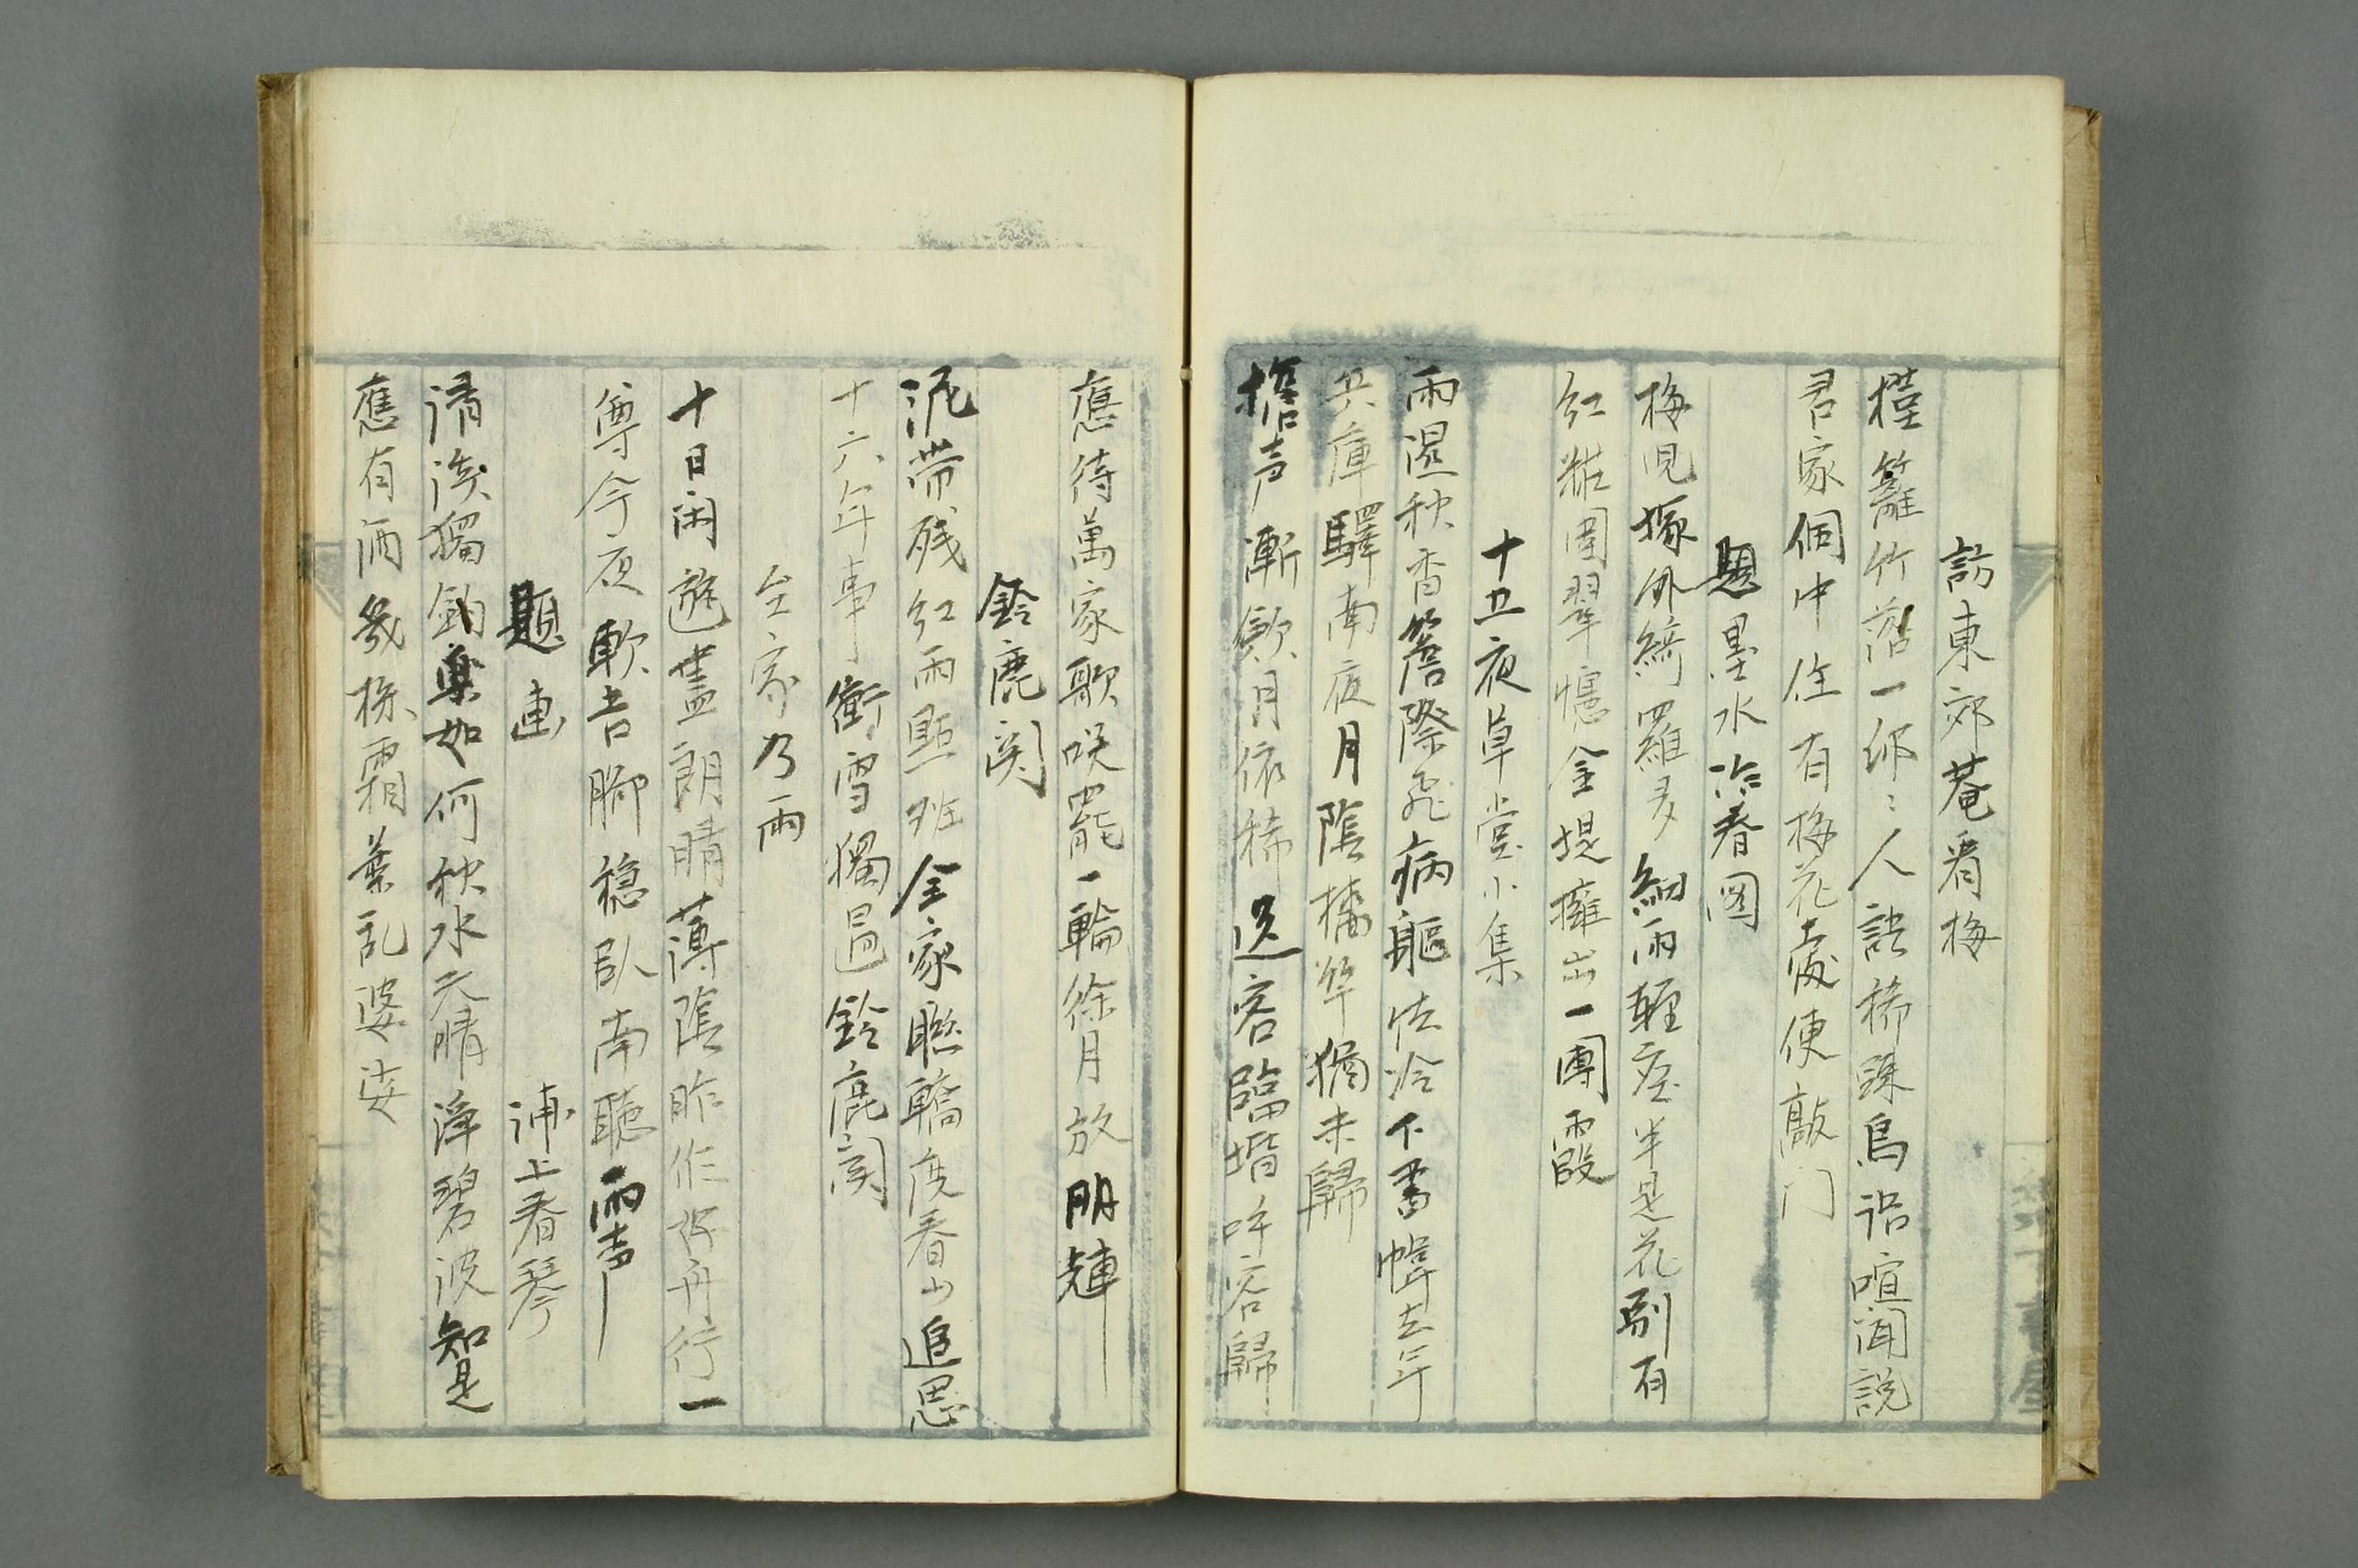 訪東郊菴看梅
槿籬竹落一邨〻人語稀踈鳥語喧聞說
君家個中住有梅花處便敲門
題墨水冶春図
梅児塚外綺羅多細雨輕塵半是花別有
紅粧圍翠幰金堤擁出一團霞
十五夜草堂小集
雨湿秋香簷際飛病軀怯冷下書幃去年
兵庫驛南夜月隂橋畔猶未歸
擔声漸歇月依稀送客臨堦吟客歸
應待萬家歌咲罷一輪徐月放明輝
鈴鹿関
泥帯残紅雨點班全家聯轎度春山追思
十六年事衝雪獨過鈴鹿関
全家乃雨
十日闲遊盡朗晴薄隂昨作舟行一
尊今夜軟吉脚穏臥南聽雨声
題画　浦上春琴
清淡獨釣樂如何秋水天晴浄碧波知是
應有酒幾株霜葉乱婆娑